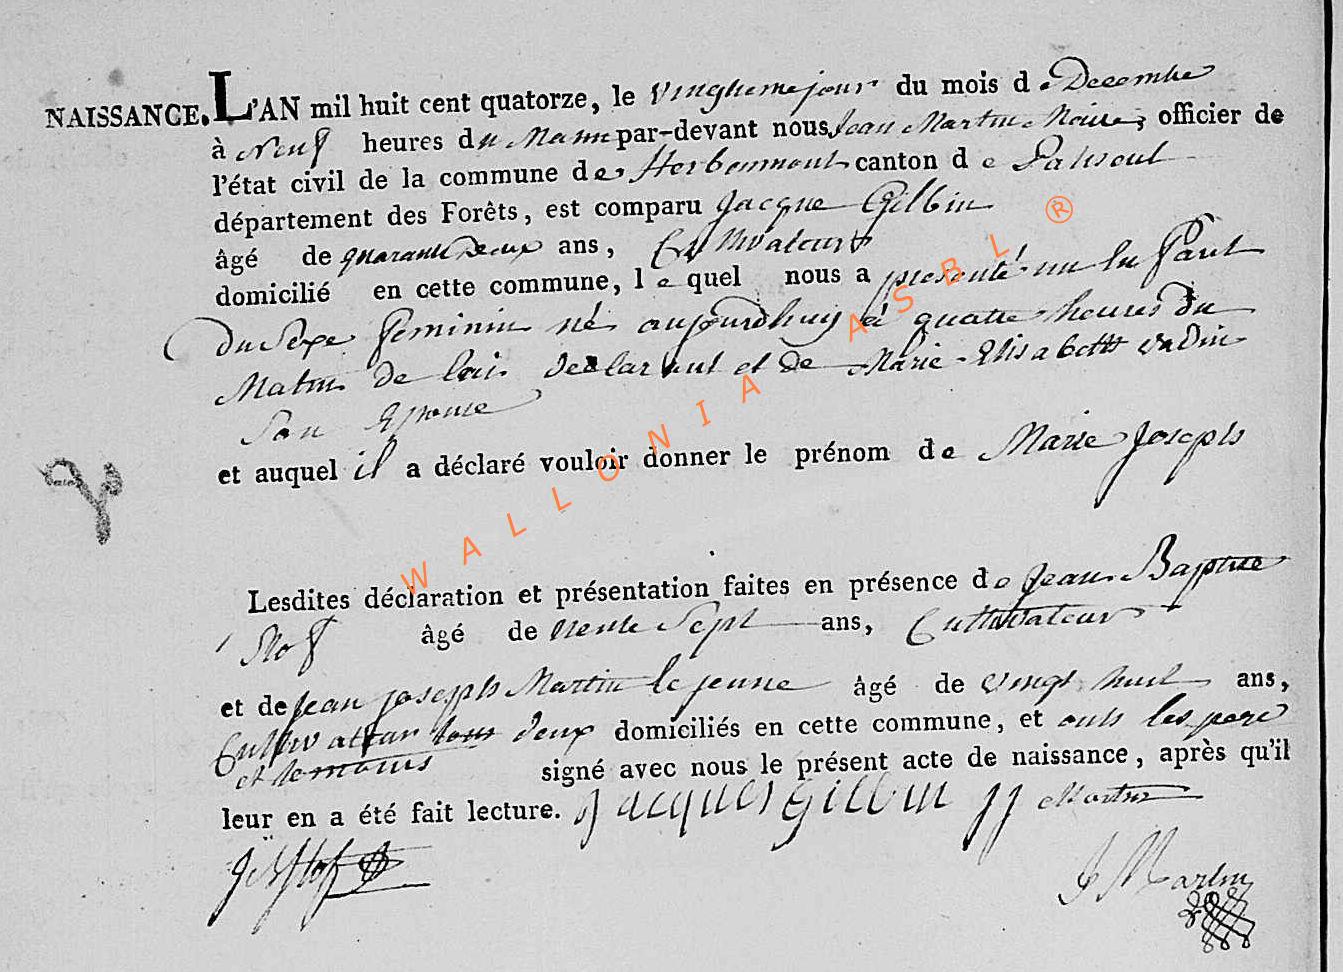 NAISSANCE. L'AN mil huit cent quatorze, le vingtieme jour du mois de Decembre
à Neuf heures du Matin par-devant nous Jean Martin Maire, officier de
l'état civil de la commune de Herbeumont canton de Paliseul
département des Forêts, est comparu Jacque Gilbin
âgé de quarante deux ans, Cultivateur
domicilié en cette commune, lequel nous a presenté un Enfant
Du Sexe feminin né aujourdhuy à quatre heures Du
Matin De lui declarant et De Marie Elisabeth
Son Epouse
et auquel il a déclaré vouloir donner le prénom de Marie Joseph
Lesdites déclaration et présentation faites en présence de Jean Baptiste
Stof âgé de trente Sept ans, Cultivateur
et de Jean joseph Martin le jeune âgé de vingt huit ans,
Cultivateur tous deux domiciliés en cette commune, et onts les pere
et temoins signé avec nous le présent acte de naissance, après qu'il
leur en a été fait lecture. Jacques Gilbin JJ Martin
JBStof J Martin
WALLONIA ASBL ®